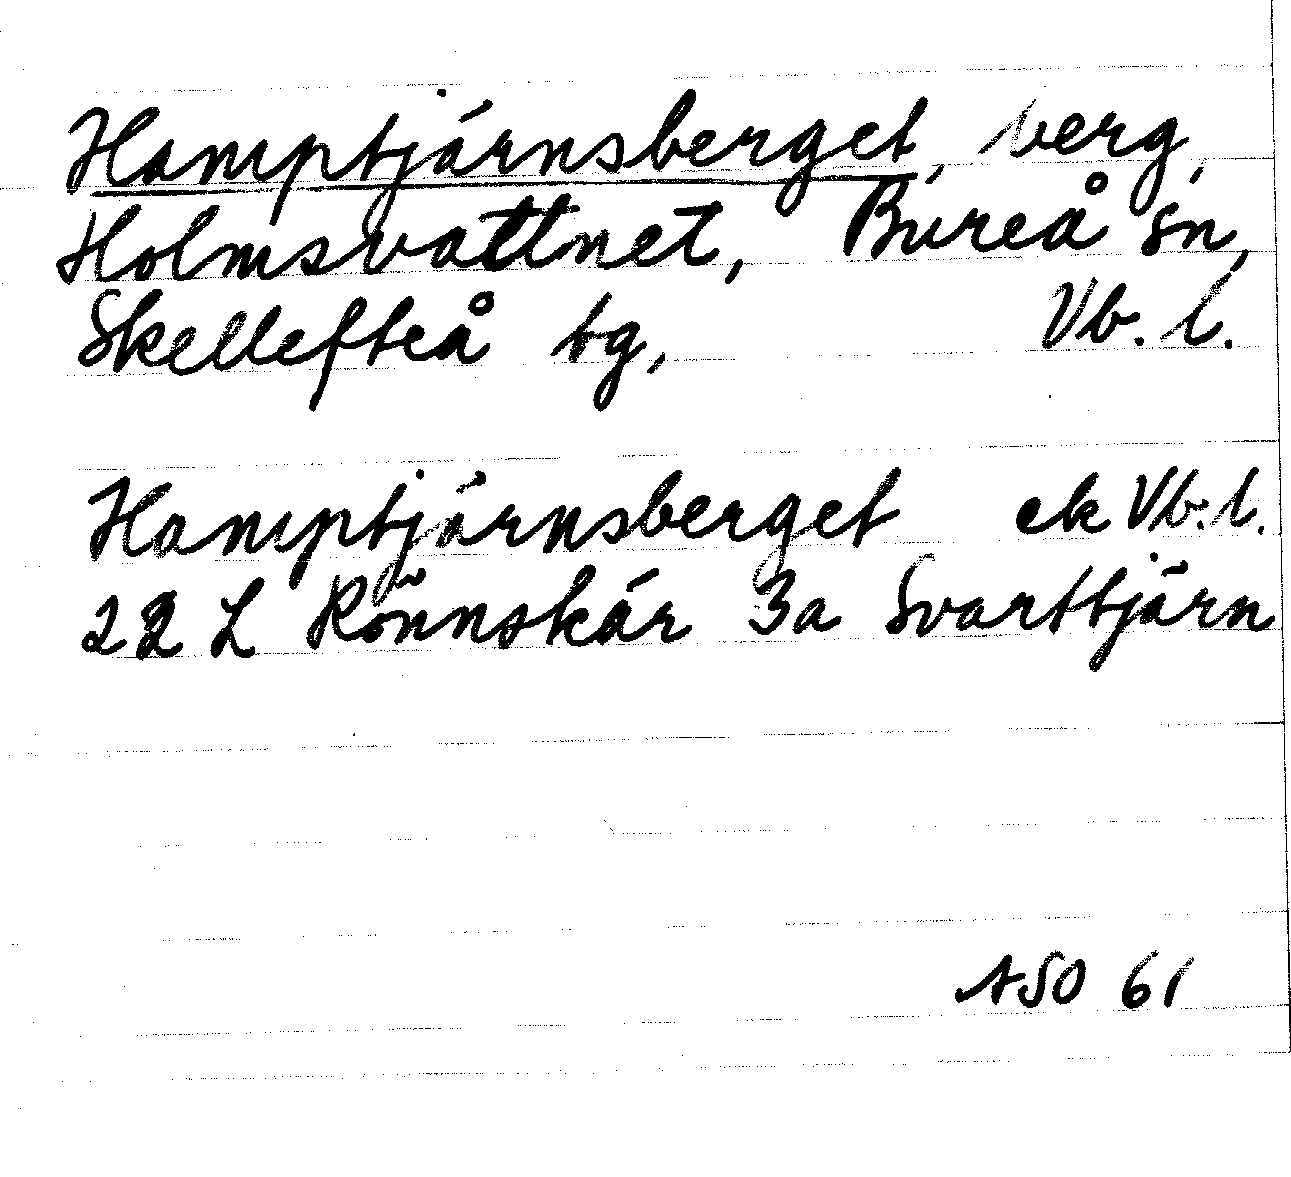 Hamptjärnsberget, berg,
Holmsvattnet, Bureå sn,
Skellefteå tg, Vb. l.
Hamptjärnsberget ek Vb. l.
22 L Rönnskär 3a Svarttjärn
ASO 61